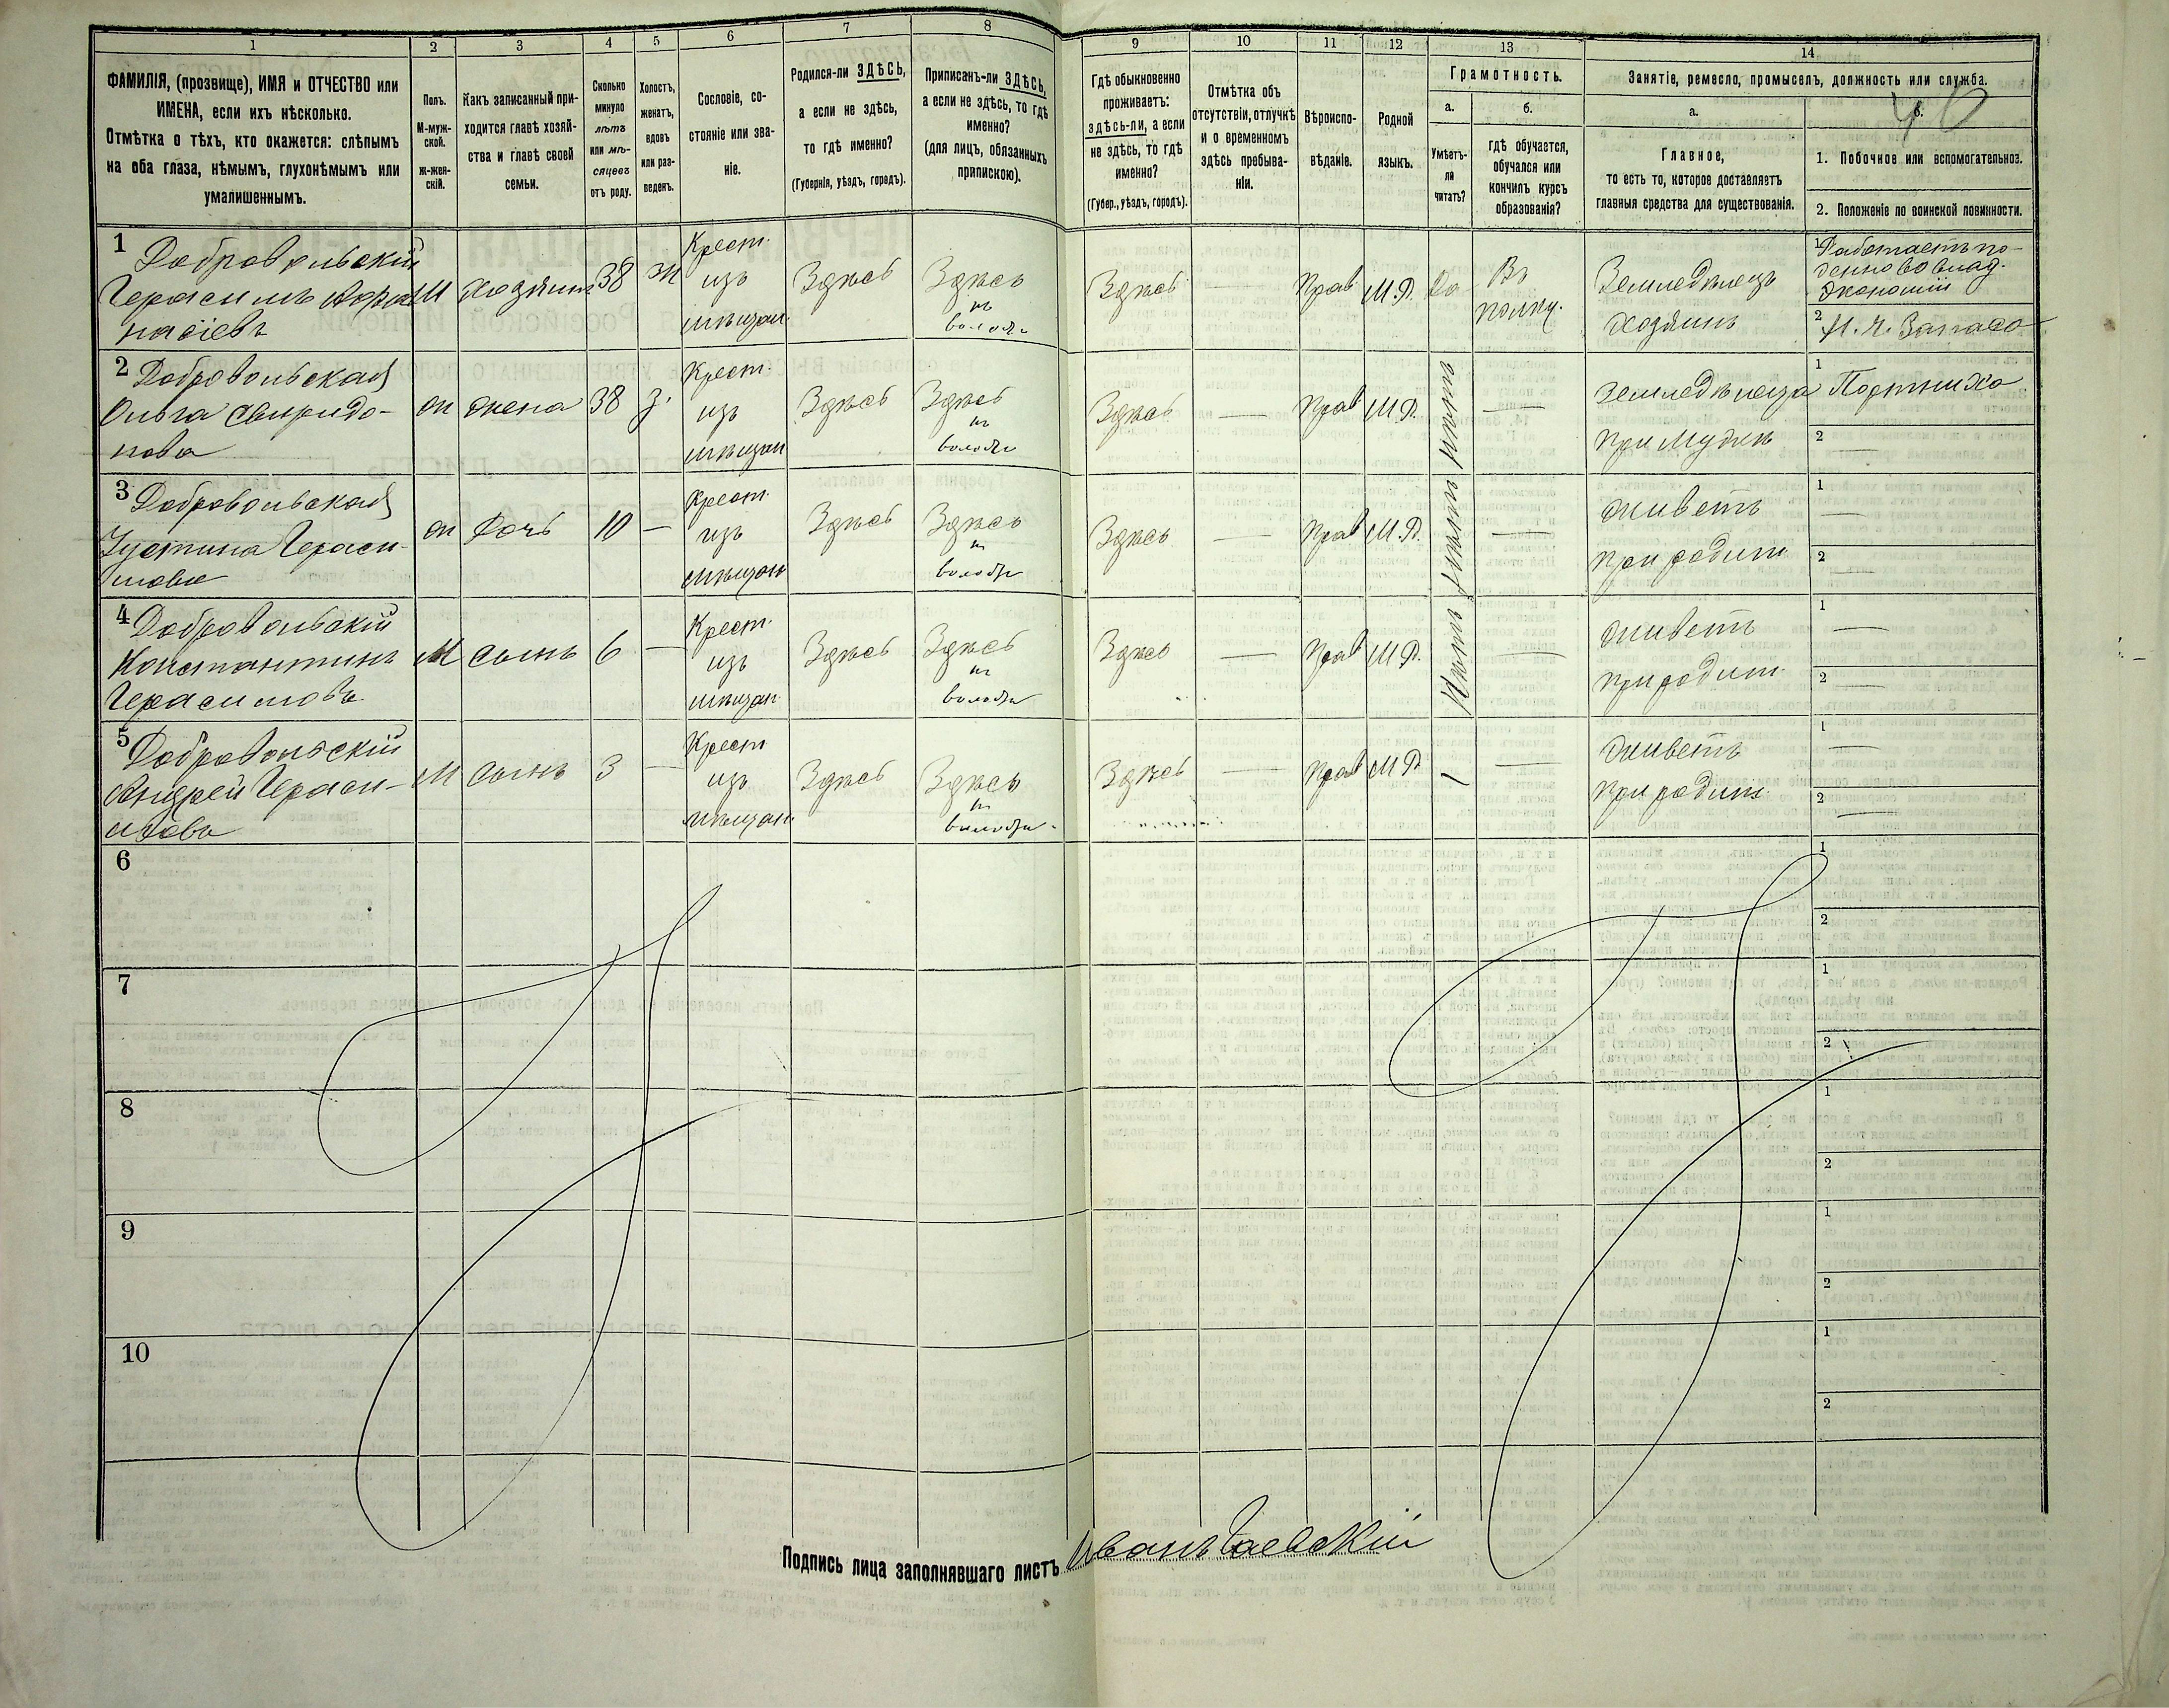 1 2 3 4 5 6 7 8 9 10 11 12 13 14
ФАМИЛІЯ, (прозвище), ИМЯ и ОТЧЕСТВО или
ИМЕНА, если ихъ нѣсколько.
Отмѣтка о тѣхъ, кто окажется: слѣпымъ
на оба глаза, нѣмымъ, глухонѣмымъ или
умалишеннымъ.
Полъ.
М-муж-
ской.
ж-жен-
скій.
Какъ записанный при-
ходится главѣ хозяй-
ства и главѣ своей
семьи.
Сколько
минуло
лѣтъ
или мѣ-
сяцевъ
отъ роду.
Холостъ,
женатъ,
вдовъ
или раз-
веденъ.
Сословіе, со-
стояніе или зва-
ніе.
Родился-ли ЗДѢСЬ,
а если не здѣсь,
то гдѣ именно?
(Губернія, уѣздъ, городъ).
Приписанъ-ли ЗДѢСЬ,
а если не здѣсь, то гдѣ
именно?
(для лицъ, обязанныхъ
припискою).
Гдѣ обыкновенно
проживаетъ:
здѣсь-ли, а если
не здѣсь, то гдѣ
именно?
(Губер., уѣздъ, городъ).
Отмѣтка объ
отсутствіи, отлучкѣ
и о временномъ
здѣсь пребыва-
ніи.
Вѣроиспо-
вѣданіе.
Родной
языкъ.
Грамотность.
а.
Умѣетъ-
ли
читать?
б.
гдѣ обучается,
обучался или
кончилъ курсъ
образованія?
Занятіе, ремесло, промыселъ, должность или служба.
а.
Главное,
то есть то, которое доставляетъ
главныя средства для существованія.
б.
1. Побочное или вспомогательное.
2. Положеніе по воинской повинности.
40
1 Добровольскій
Герасимъ Афа-
насіевъ
М
хозяинъ
38
Ж
Крест.
изъ
мѣщан.
Здѣсь
Здѣсь
въ
волости
Здѣсь
—
Прав
М.Р.
Да
Въ
полку.
Земледѣлецъ
хозяинъ
1 Работаетъ по-
денно во влад.
экономіи
2
2 Добровольская
Ольга Свиридо-
нова
ж
жена
38
З.
Крест.
изъ
мѣщан
Здѣсь
Здѣсь
въ
волости
Здѣсь
—
Прав
М.Р.
Нѣтъ
—
Земледѣлица
при мужѣ
1 Портниха
2 —
3 Добровольская
Устина Гераси-
мова
ж
дочь
10
—
Крест.
изъ
мѣщан
Здѣсь
Здѣсь
въ
волости
Здѣсь
—
Прав
М.Р.
Нѣтъ
—
живетъ
при родит.
1 —
2 —
4 Добровольскій
Константинъ
Герасимовъ
М
сынъ
6
—
Крест.
изъ
мѣщан
Здѣсь
Здѣсь
въ
волости
Здѣсь
—
Прав
М.Р.
Нѣтъ
—
живетъ
при родит.
1 —
2 —
5 Добровольскій
Андрей Гераси-
мовъ
М
сынъ
3
—
Крест
изъ
мѣщан.
Здѣсь
Здѣсь
въ
волости
Здѣсь
—
Прав
М.Р.
—
живетъ
при родит.
1 —
2 —
6
1
2
7
1
2
8
1
2
9
1
2
10
1
2
Подпись лица заполнявшаго листъ Иванъ Гаевскій